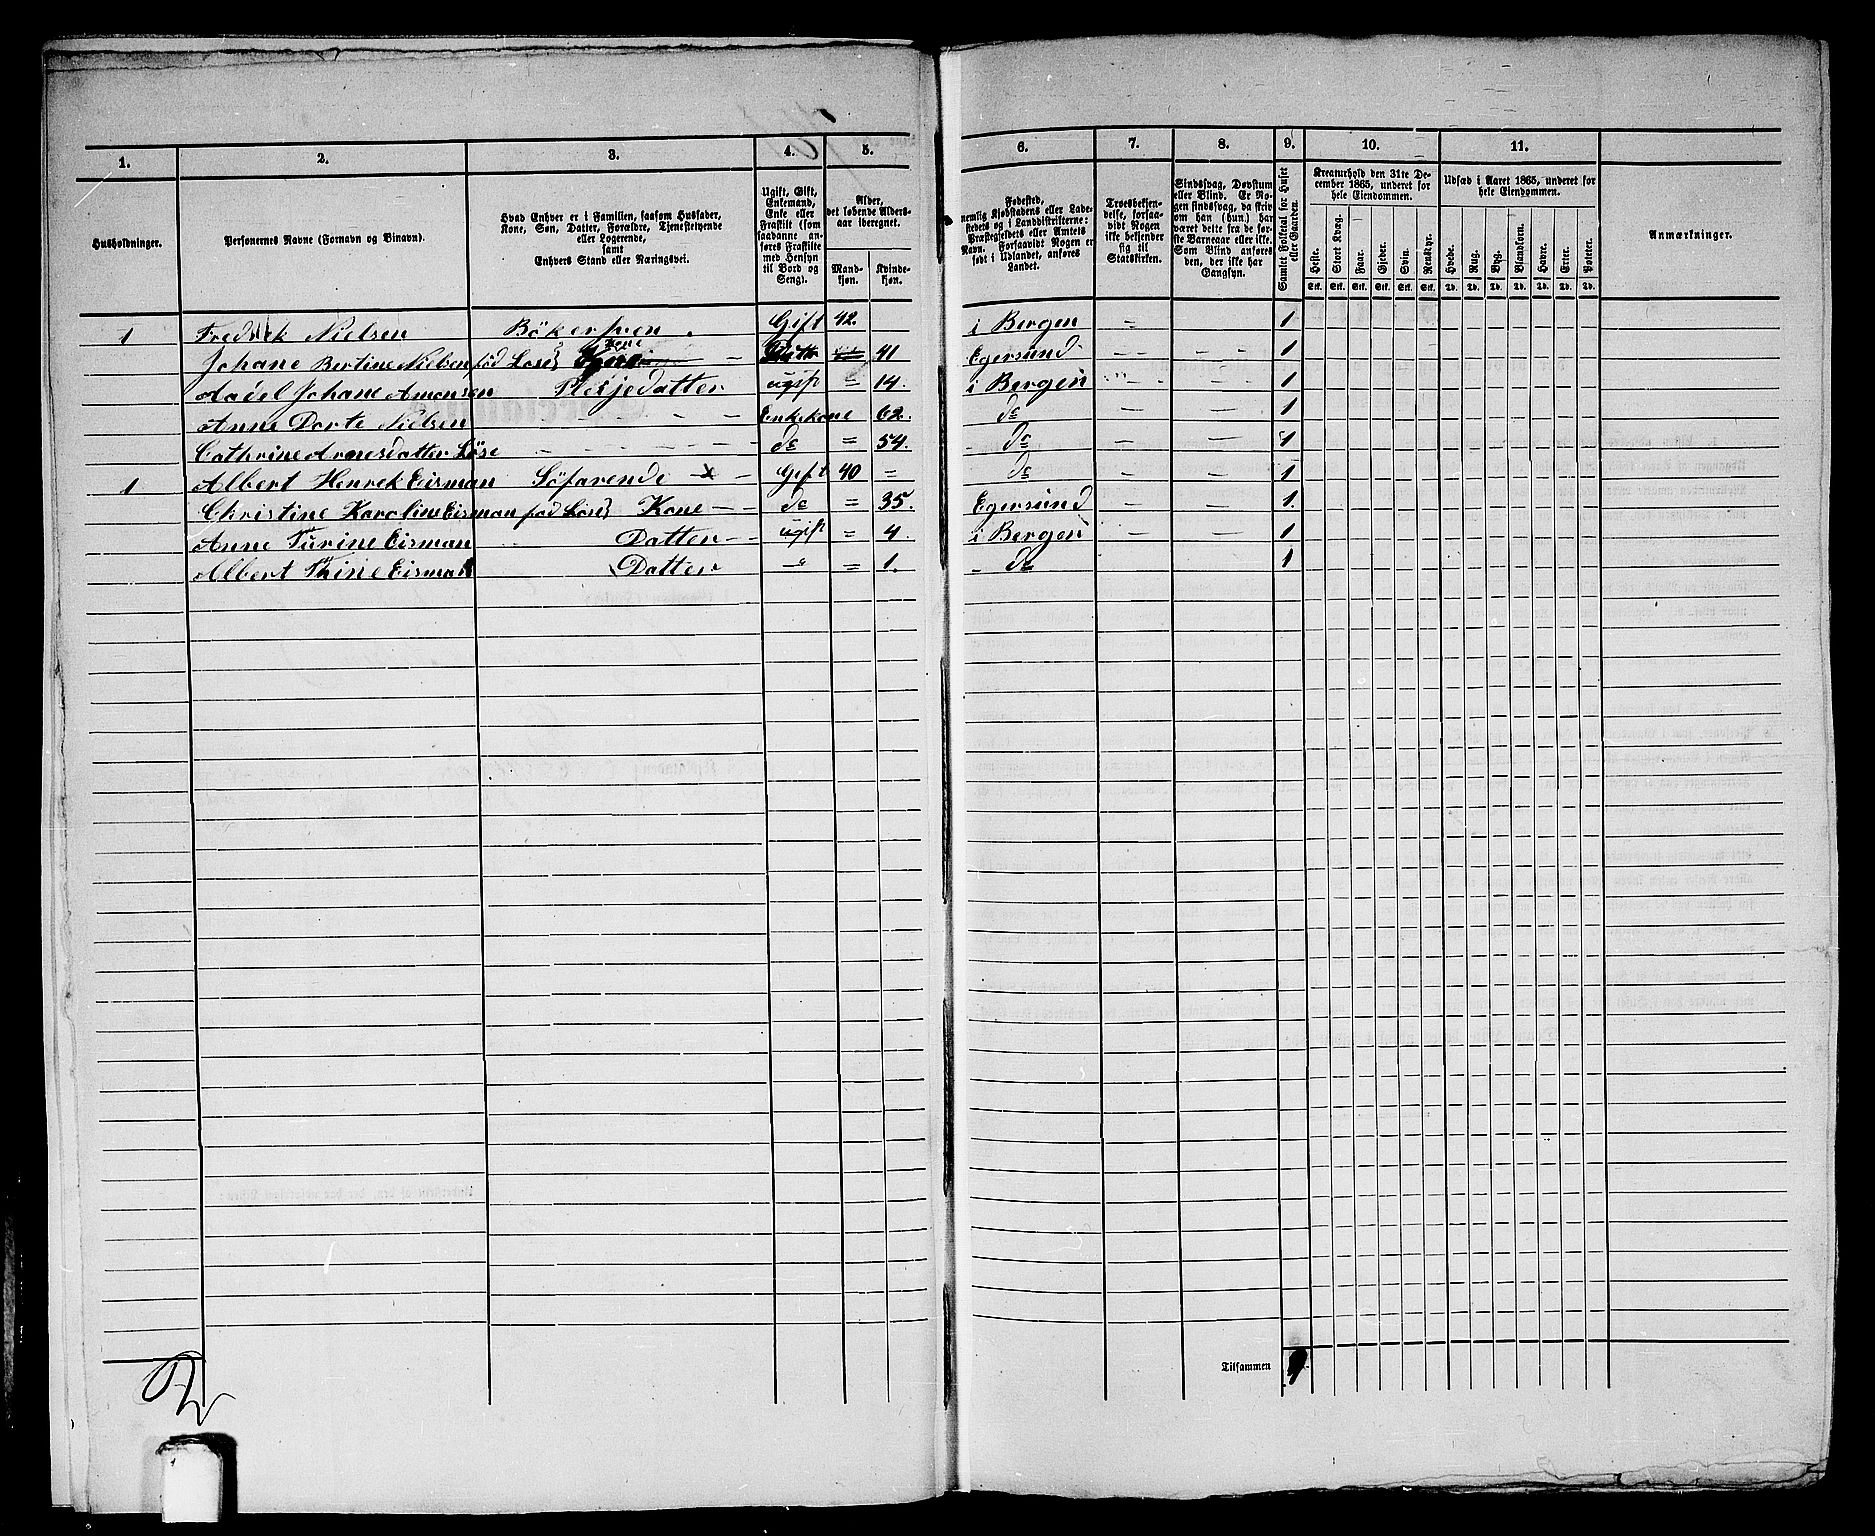 1. 2. 3. 4. 5. 6. 7. 8. 9. 10. 11.
Husholdninger.
Personernes Navne (Fornavn og Binavn).
Hvad Enhver er i Familien, saasom Husfader,
Kone, Søn, Datter, Forældre, Tjenestetyende
eller Logerende,
samt
Enhvers Stand eller Næringsvei.
Ugift, Gift,
Enkemand,
Enke eller
Fraskilt (som
saadanne an-
føres Fraskilte
med Hensyn
til Bord og
Seng).
Alder,
det løbende Alders-
aar iberegnet.
Mand-
kjøn.
Kvinde-
kjøn.
Fødested,
nemlig Kjøbstadens eller Lade-
stedets og i Landdistrikterne:
Præstegjeldets eller Amtets
Navn. Forsaavidt Nogen er
født i Udlandet, anføres
Landet.
Troesbekjen-
delse, forsaa-
vidt Nogen
ikke bekjender
sig til
Statskirken.
Sindssvag, Døvstum
eller Blind. Er No-
gen sindssvag, da skriv
om han (hun) har
været dette fra de før-
ste Barneaar eller ikke.
Som Blind anføres
den, der ikke har
Gangsyn.
Samlet Folketal for Huset
eller Gaarden.
Kreaturhold den 31te De-
cember 1865, underet for
hele Eiendommen.
Heste. Stort Kvæg. Faar. Gjeder. Svin. Rensdyr.
Stk. Stk. Stk. Stk. Stk. Stk.
Udsæd i Aaret 1865, underet for
hele Eiendommen.
Hvede. Rug. Byg. Blandkorn. Havre. Erter. Poteter.
Td. Td. Td. Td. Td. Td. Td.
Anmærkninger.
1 Fredrek Nielsen Böker Sven . Gift 42. i Bergen – 1
Johane Bertine Nielsen föd Løse} Kone – 41 Egersund – – 1
Aadel Johane Amonsen Pleijedatter ugift = 14. i Bergen – 1
Anne Dorte Nielsen – – – Enkekone 62. do – – 1
Cathrine Arnesdatter Löse – – – do = 54. – do – – 1
1 Albert Henrek Eisman Söfarende – x – Geft 40 = do – – 1
Christine Karoline Eisman föd Løse} Kone – – do = 35. Egersund – – 1.
Anne Turine Eisman Datter – – ugift = 4. i Bergen – – 1
Albert Trine Eisman Datter – " – = 1. – do 1
Tilsammen 9